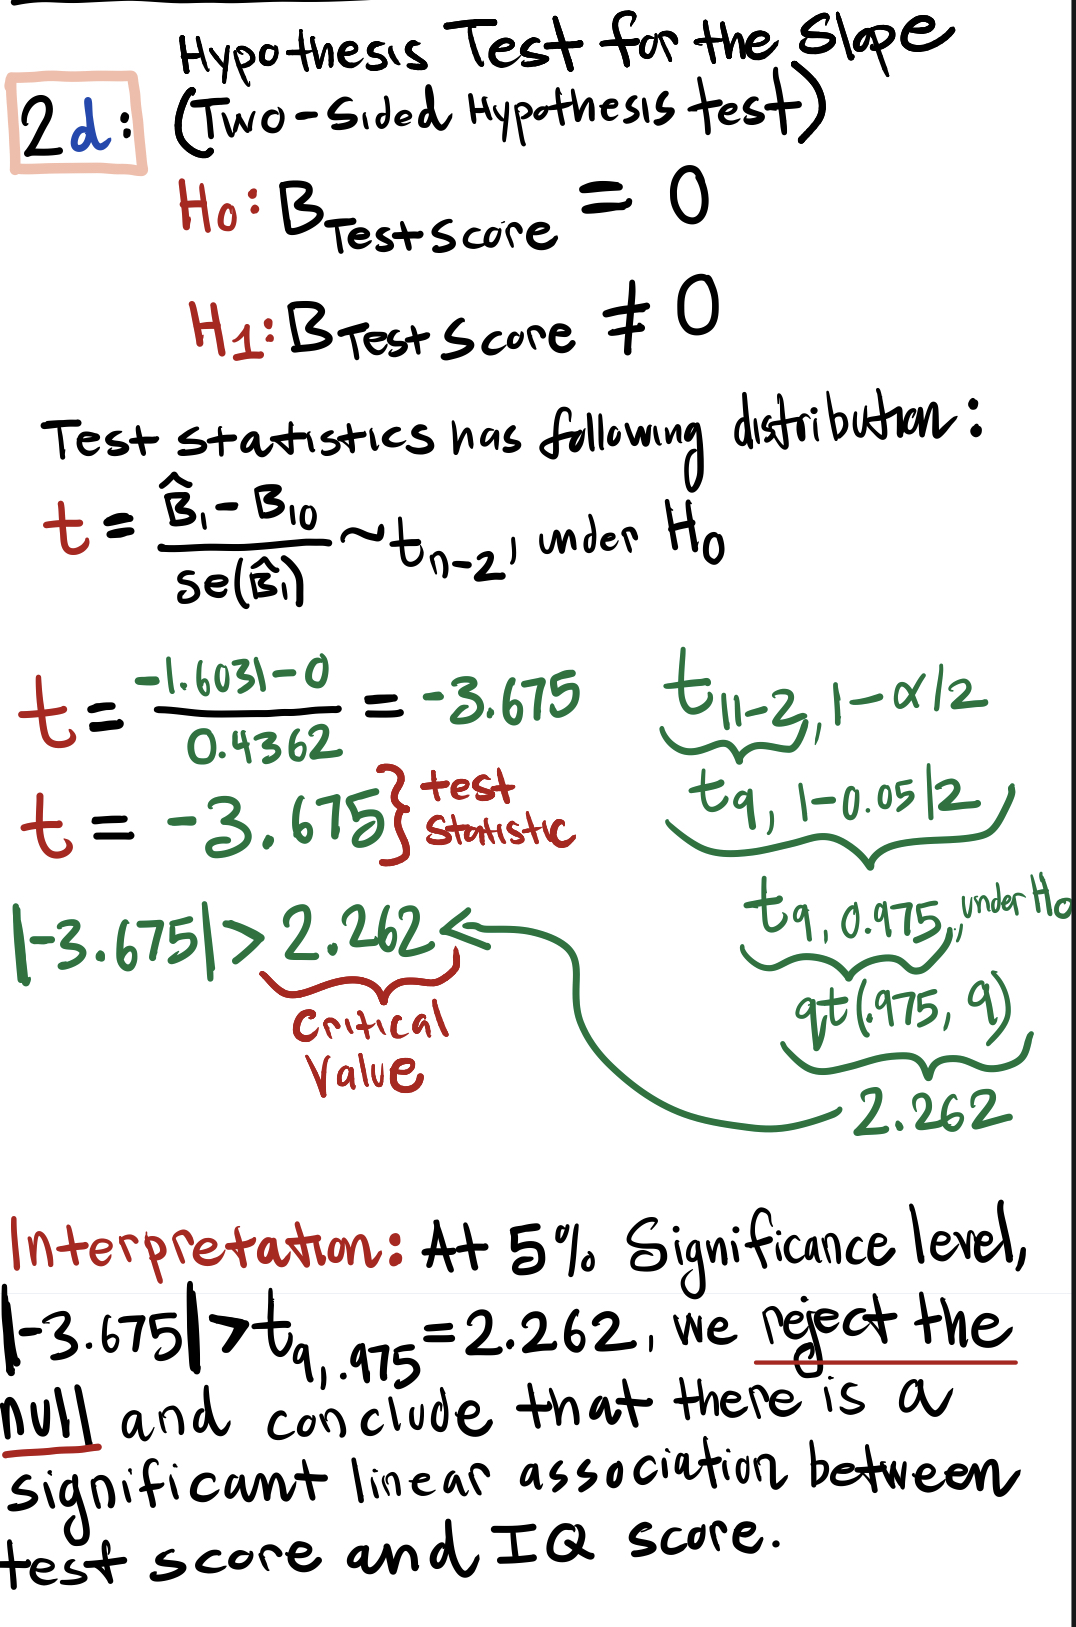 Hypothesis Test for the Slope
2d: (Two-Sided Hypothesis test)
H₀: B_Test Score = 0
H₁: B_Test Score ≠ 0
Test statistics has following distribution:
t = (B̂₁ - B₁₀) / se(B̂₁) ~ t_n-2, under H₀
t = (-1.6031 - 0) / 0.4362 = -3.675
t = -3.675 } test statistic
t_11-2, 1-α/2
t_9, 1-0.05/2
t_9, 0.975, under H₀
qt(.975, 9)
2.262
|-3.675| > 2.262
Critical
Value
Interpretation: At 5% Significance level,
|-3.675| > t_9, .975 = 2.262, we reject the
null and conclude that there is a
significant linear association between
test score and IQ score.